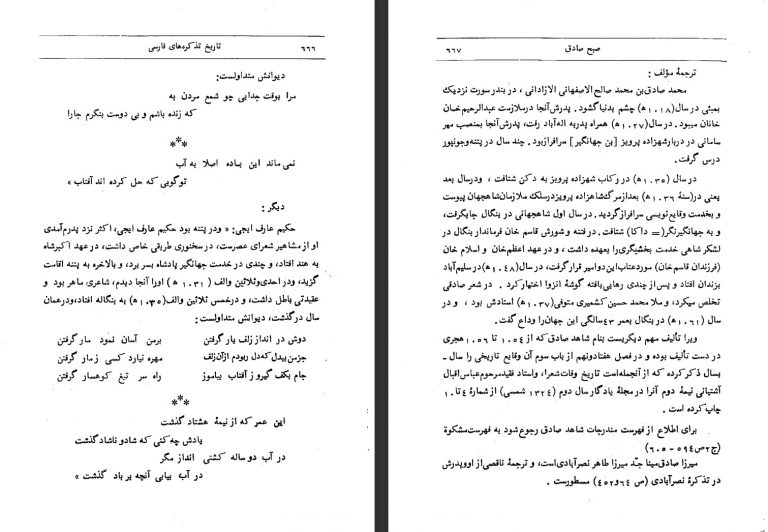 تاریخ تذکره‌های فارسی
۶۶۶
دیوانش متداولست:
مرا بوقت جدایی چو شمع مردن به
که زنده باشم و بی دوست بنگرم جا را
***
نمی ماند این باده اصلا به آب
توگویی که حل کرده اند آفتاب »
دیگر :
حکیم عارف ایجی: « ودر پتنه بود حکیم عارف ایجی، اکثر نزد پدرم آمدی
او از مشاهیر شعرای عصرست، در سخنوری طریقی خاص داشت، در عهد اکبرشاه
به هند افتاد، و چندی در خدمت جهانگیر پادشاه بسر برد، و بالاخره به پتنه اقامت
گزید، ودر احدی وثلاثین والف (۱۰۳۱ ه) اورا آنجا دیدم، شاعری ماهر بود و
عقیدتی باطل داشت، و درخمس ثلاثین والف(۱۰۳۵ه) به بنگاله افتاد، ودرهمان
سال درگذشت، دیوانش متداولست:
دوش در انداز زلف یار گرفتن برمن آسان نمود مار گرفتن
جز من بیدل که دل ربودم از آن زلف مهره نیارد کسی ز مار گرفتن
جام بکف گیر و ز آفتاب بیاموز راه سر تیغ کوهسار گرفتن
***
این عمر که از نیمهٔ هشتاد گذشت
یادش چه کنی که شاد و ناشاد گذشت
در آب دو ساله کشتی انداز مگر
در آب بیابی آنچه بر باد گذشت »
صبح صادق
۶۶۷
ترجمهٔ مؤلف :
محمد صادق بن محمد صالح الاصفهانی الازادانی ، در بندر سورت نزدیک
بمبئی در سال (۱۰۱۸ ه) چشم بدنیا گشود . پدرش آنجا در ملازمت عبدالرحیم خان
خانان میبود . در سال (۱۰۲۷ ه) همراه پدر به اله‌آباد رفت، پدرش آنجا بمنصب میر
سامانی در دربار شهزاده پرویز [بن جهانگیر] سرافراز بود . چند سال در پتنه وجونپور
درس گرفت.
در سال (۱۰۳۵ ه) در رکاب شهزاده پرویز به دکن شتافت ، ودرسال بعد
یعنی در (سنهٔ ۱۰۳۶ ه) بعد از مرگ شاهزاده پرویز درسلک ملازمان شاهجهان پیوست
و بخدمت وقایع نویسی سرافراز گردید. در سال اول شاهجهانی در بنگال جایگرفت،
و به جهانگیرنگر (= داکا) شتافت . در فتنه و شورش قاسم خان فرماندار بنگال در
لشکر شاهی خدمت بخشیگری را بعهده داشت ، و در عهد اعظم خان و اسلام خان
(فرزندان قاسم خان) مورد عتاب این دو امیر قرار گرفت، در سال (۱۰۴۸ ه) در سلیم‌آباد
بزندان افتاد و پس از چندی رهایی یافته گوشهٔ انزوا اختیار کرد . در شعر صادقی
تخلص میکرد، و ملا محمد حسین کشمیری متوفی (۱۰۳۷ ه) استادش بود ، و در
سال (۱۰۶۱ ه) در بنگال بعمر ۴۳ سالگی این جهان را وداع گفت .
ویرا تألیف مهم دیگریست بنام شاهد صادق که از ۱۰۵۴ تا ۱۰۵۶ هجری
در دست تألیف بوده و در فصل هفتادونهم از باب سوم آن وقایع تاریخی را سال -
بسال ذکر کرده که از آنجمله است تاریخ وفات شعرا، و استاد فقید مرحوم عباس اقبال
آشتیانی نیمهٔ دوم آنرا در مجلهٔ یادگار سال دوم (۱۳۲۴ شمسی) از شمارهٔ ۴ تا ۱۰
چاپ کرده است .
برای اطلاع از فهرست مندرجات شاهد صادق رجوع شود به فهرست مشکوة
(ج۲ ص۵۹۴ - ۶۰۵)
میرزا صادق مینا جد میرزا طاهر نصرآبادی است، و ترجمهٔ ناقصی از او و پدرش
در تذکرهٔ نصرآبادی (ص ۶۴ و ۴۵۲) مسطورست .